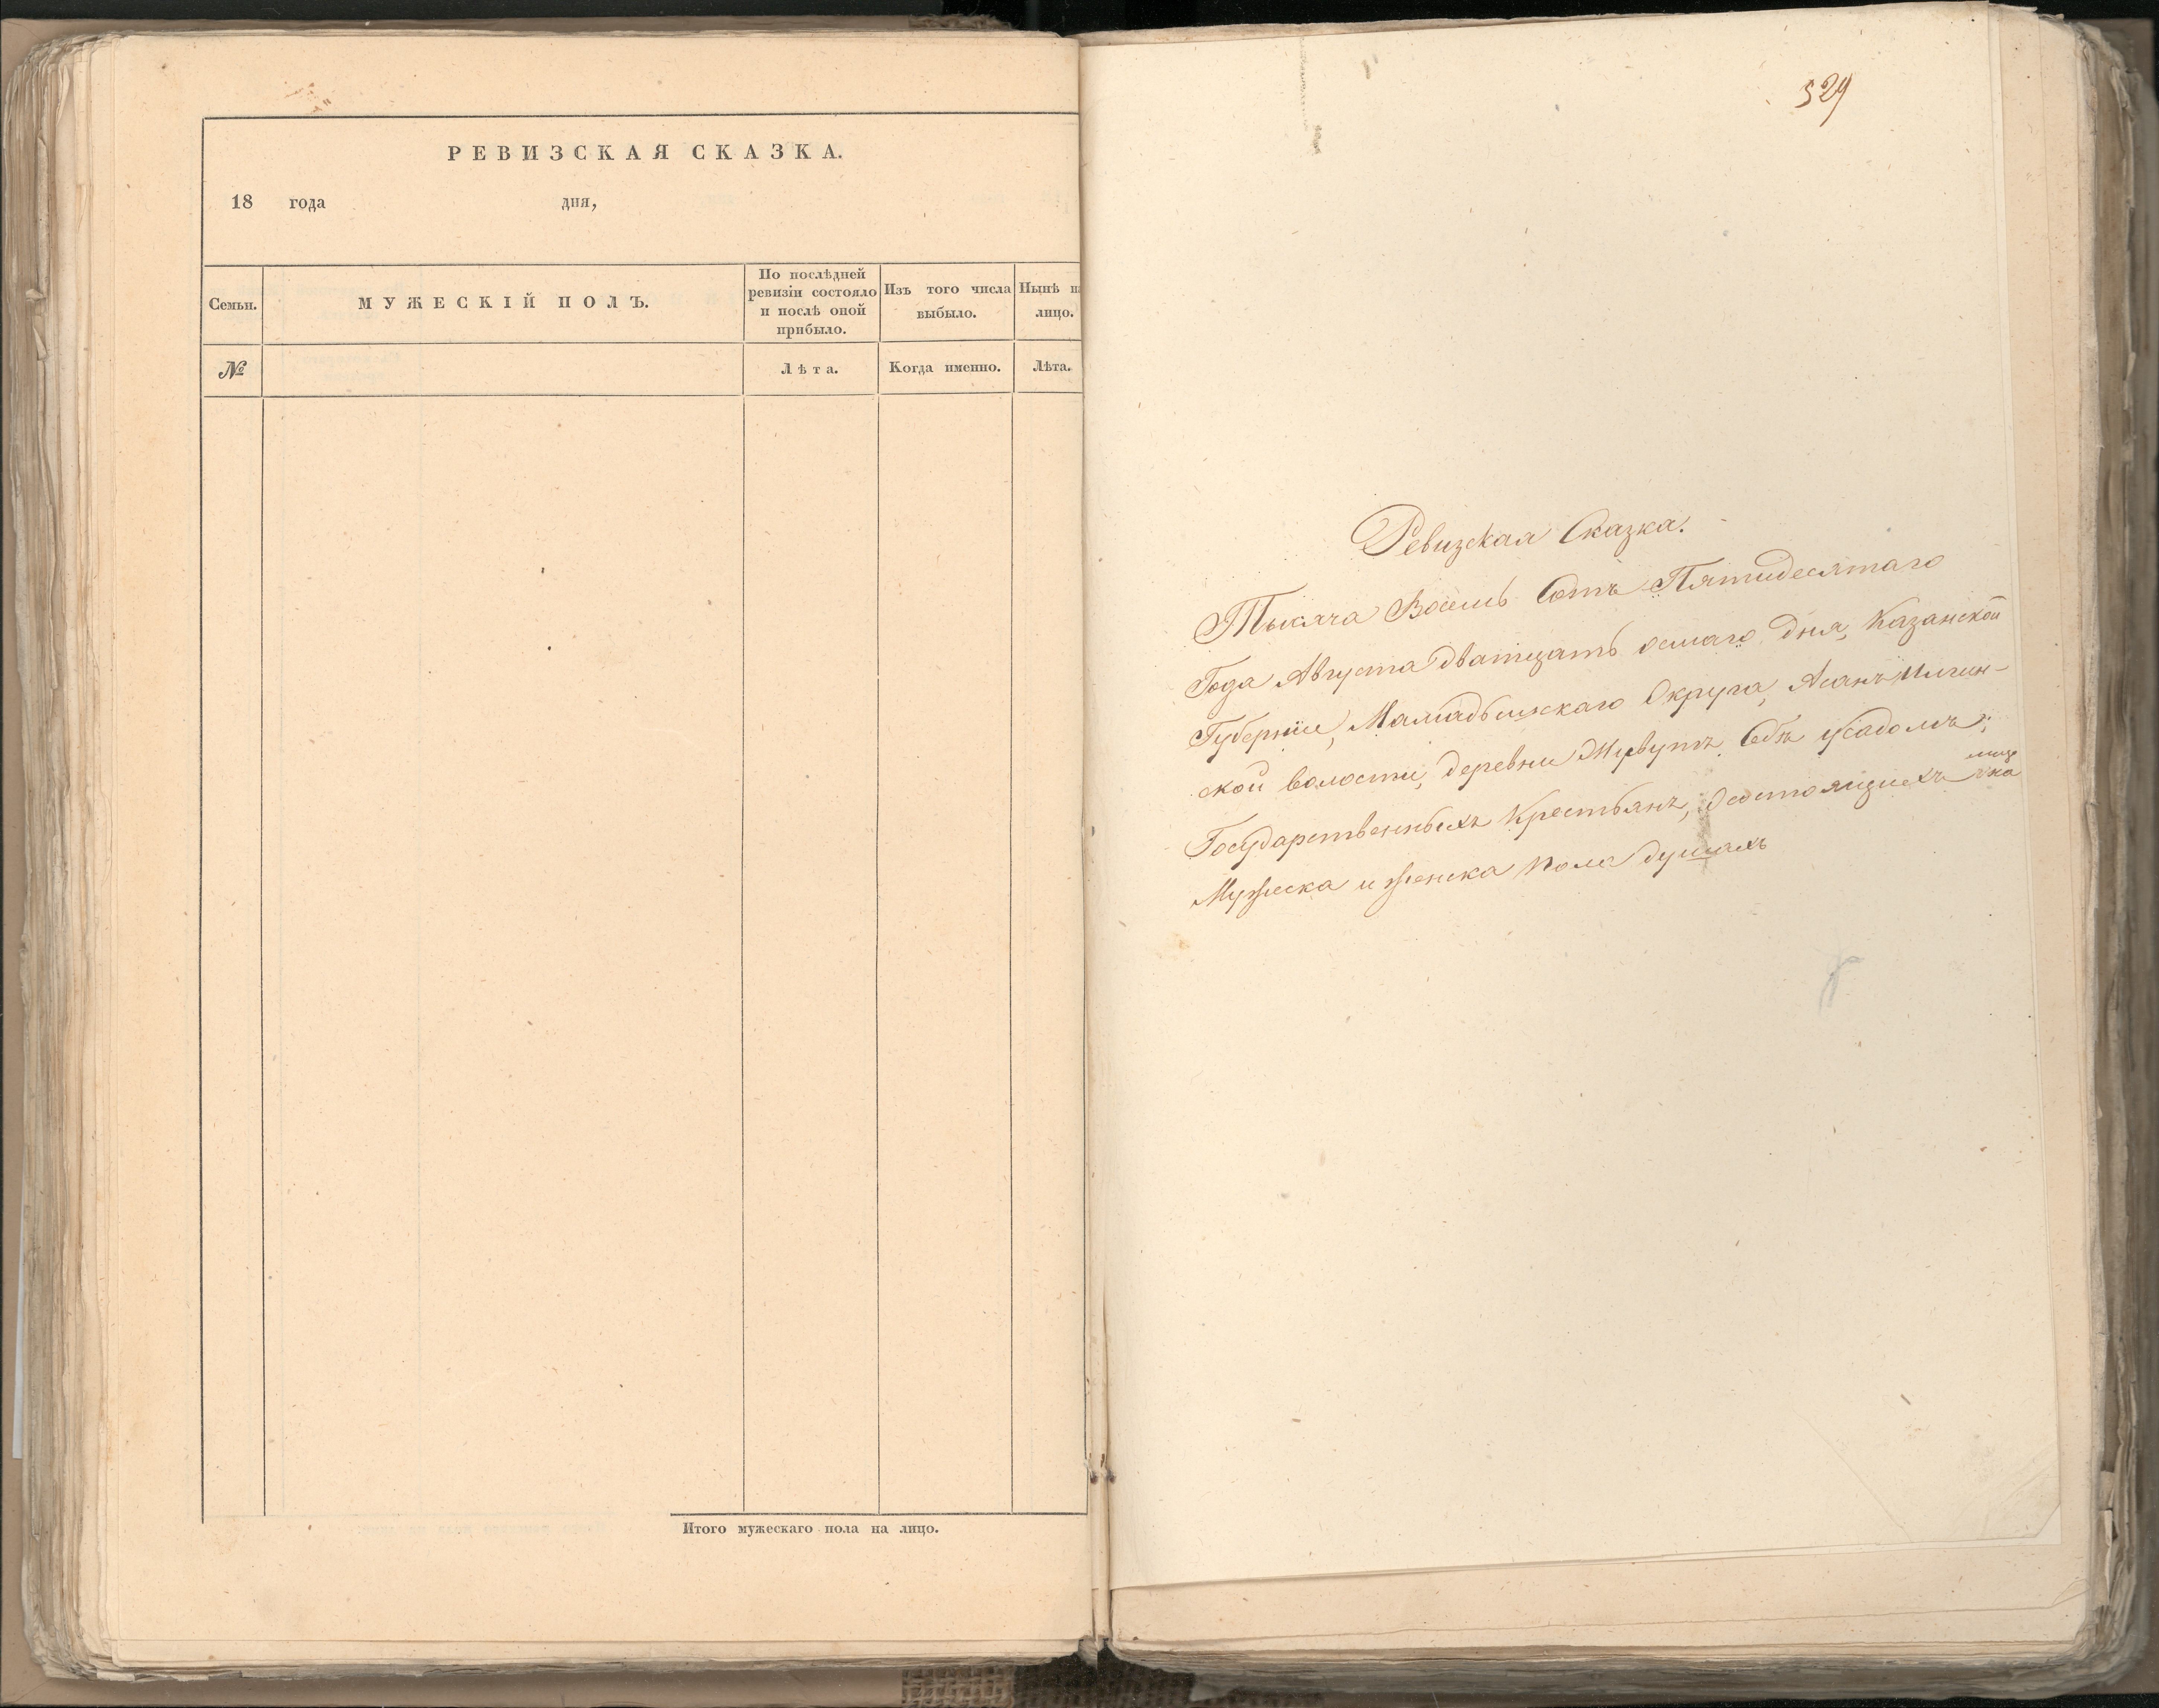 РЕВИЗСКАЯ СКАЗКА.
18 года дня,
Семьи.
МУЖЕСКІЙ ПОЛЪ.
По послѣдней
ревизіи состояло
и послѣ оной
прибыло.
Изъ того числа
выбыло.
Нынѣ на
лицо.
№
Лѣта.
Когда именно.
Лѣта.
Итого мужескаго пола на лицо.
529
Ревизская Сказка.
Тысяча Восемь Сотъ Пятидесятаго
Года Августа дватцать осмаго дня, Казанской
Губерніи, Мамадышскаго Округа, Асанъ Илгин-
ской волости, деревни
Государственныхъ Крестьянъ, О состоящихъ
Мужеска и женска пола душахъ